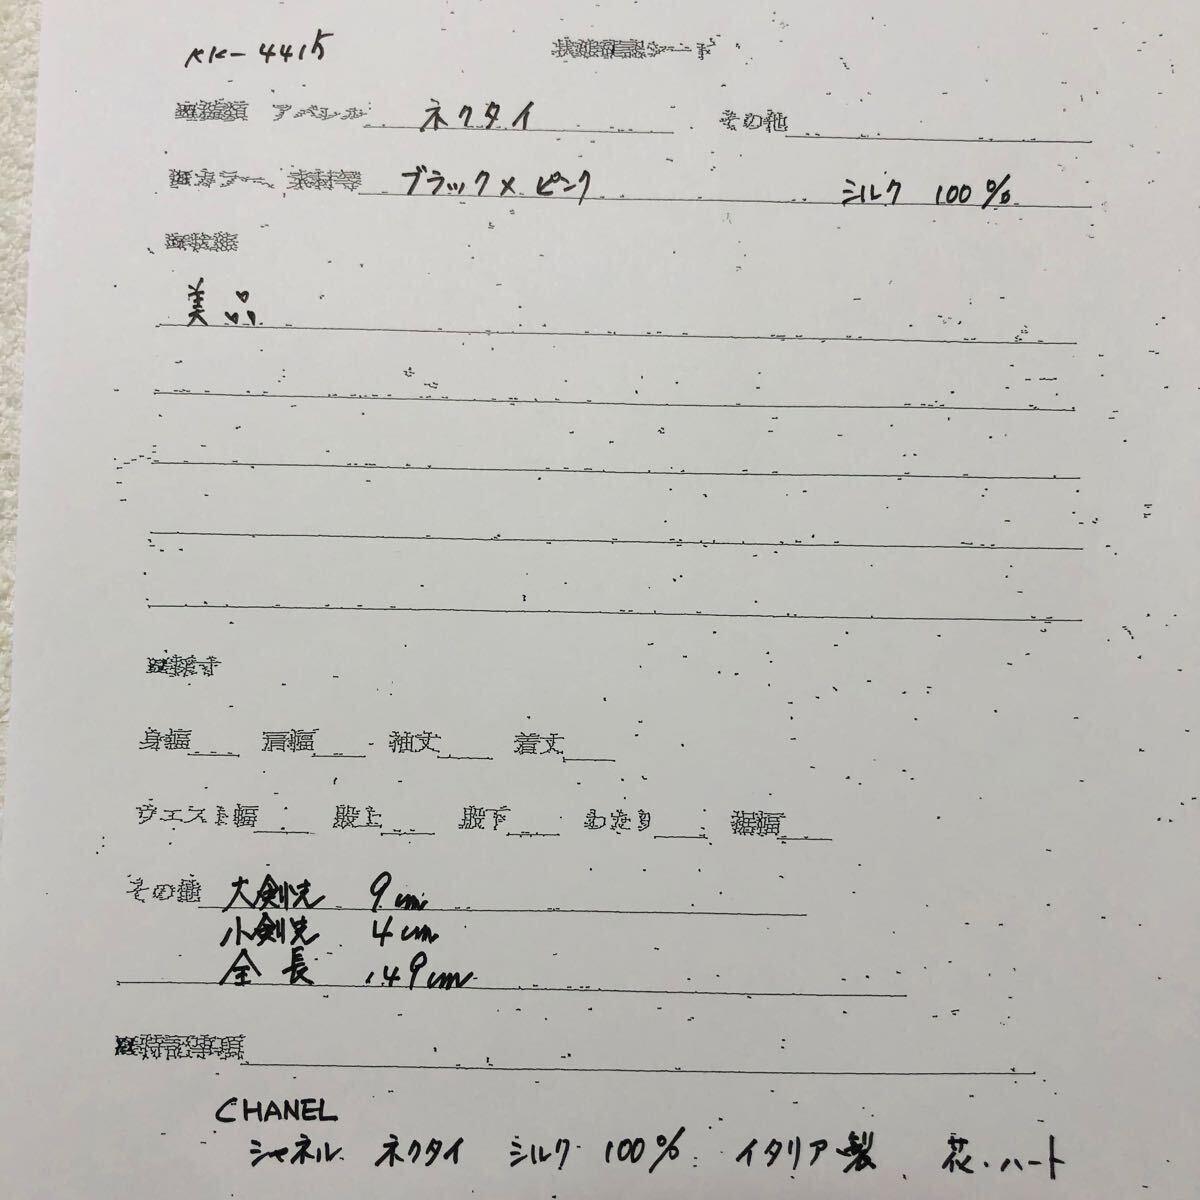 KK-4415
状態確認シート
※種類 アパレル ネクタイ その他
※カラー、素材等 ブラック×ピンク シルク 100%
※状態
美品
※採寸
身幅 肩幅 袖丈 着丈
ウエスト幅 股上 股下 わたり 裾幅
その他 大剣先 9cm
小剣先 4cm
全長 149cm
※特記事項
CHANEL
シャネル ネクタイ シルク 100% イタリア製 花・ハート